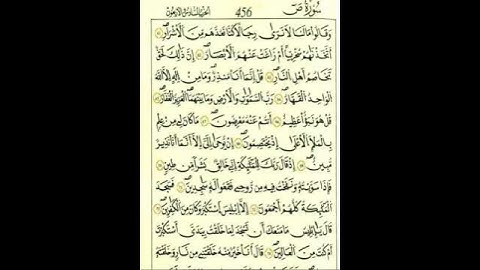 سُورَةُ صٓ 456 الحزب السادس والأربعون
وَقَالُوا۟ مَا لَنَا لَا نَرَىٰ رِجَالًا كُنَّا نَعُدُّهُم مِّنَ ٱلْأَشْرَارِ ۝
أَتَّخَذْنَٰهُمْ سِخْرِيًّا أَمْ زَاغَتْ عَنْهُمُ ٱلْأَبْصَٰرُ ۝ إِنَّ ذَٰلِكَ لَحَقٌّ
تَخَاصُمُ أَهْلِ ٱلنَّارِ ۝ قُلْ إِنَّمَآ أَنَا۠ مُنذِرٌ وَمَا مِنْ إِلَٰهٍ إِلَّا ٱللَّهُ
ٱلْوَٰحِدُ ٱلْقَهَّارُ ۝ رَبُّ ٱلسَّمَٰوَٰتِ وَٱلْأَرْضِ وَمَا بَيْنَهُمَا ٱلْعَزِيزُ ٱلْغَفَّٰرُ ۝
قُلْ هُوَ نَبَؤٌا۟ عَظِيمٌ ۝ أَنتُمْ عَنْهُ مُعْرِضُونَ ۝ مَا كَانَ لِىَ مِنْ عِلْمٍ
بِٱلْمَلَإِ ٱلْأَعْلَىٰٓ إِذْ يَخْتَصِمُونَ ۝ إِن يُوحَىٰٓ إِلَىَّ إِلَّآ أَنَّمَآ أَنَا۠ نَذِيرٌ
مُّبِينٌ ۝ إِذْ قَالَ رَبُّكَ لِلْمَلَٰٓئِكَةِ إِنِّى خَٰلِقٌۢ بَشَرًا مِّن طِينٍ ۝
فَإِذَا سَوَّيْتُهُۥ وَنَفَخْتُ فِيهِ مِن رُّوحِى فَقَعُوا۟ لَهُۥ سَٰجِدِينَ ۝ فَسَجَدَ
ٱلْمَلَٰٓئِكَةُ كُلُّهُمْ أَجْمَعُونَ ۝ إِلَّآ إِبْلِيسَ ٱسْتَكْبَرَ وَكَانَ مِنَ ٱلْكَٰفِرِينَ ۝
قَالَ يَٰٓإِبْلِيسُ مَا مَنَعَكَ أَن تَسْجُدَ لِمَا خَلَقْتُ بِيَدَىَّ أَسْتَكْبَرْتَ
أَمْ كُنتَ مِنَ ٱلْعَالِينَ ۝ قَالَ أَنَا۠ خَيْرٌ مِّنْهُ خَلَقْتَنِى مِن نَّارٍ وَخَلَقْتَهُۥ